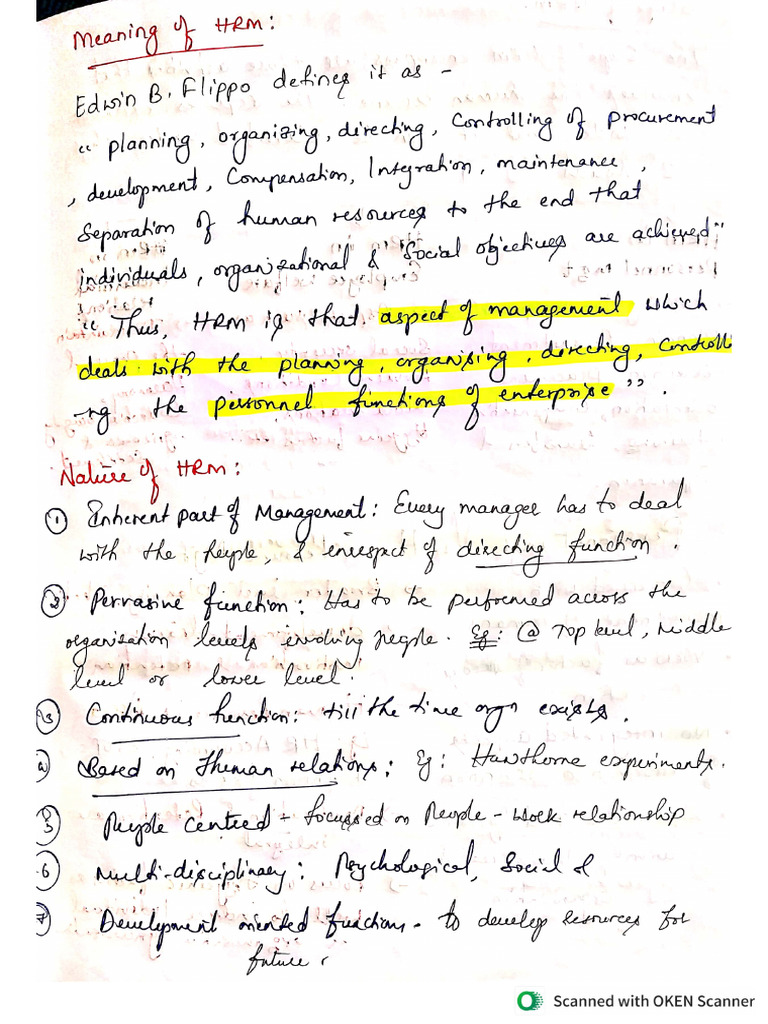 Meaning of HRM:
Edwin B. Flippo defines it as -
" planning, organizing, directing, Controlling of procurement
, development, Compensation, Integration, maintenance,
Separation of human resources to the end that
individuals, organizational & Social objectives are achieved"
" Thus, HRM is that aspect of management which
deals with the planning, organising, directing, Controlli
-ng the personnel functions of enterprise".
Nature of HRM:
① Inherent part of Management: Every manager has to deal
with the people, & in respect of directing function.
② Pervasive function: Has to be performed across the
organisation levels involving people. Eg: @ Top level, Middle
level or lower level.
③ Continuous function: till the time orgn exists.
Based on Human relations: Eg: Hawthorne experiments.
⑤ People Centred - focussed on People - Work relationship
⑥ Multi-disciplinary: Psychological, Social
⑦ Development oriented functions - to develop resources for
future
Scanned with OKEN Scanner